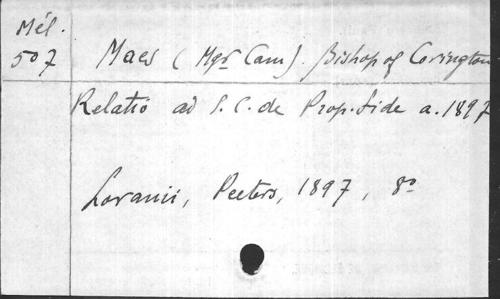 Mél.
507
Maes (Mgr Cam). Bishop of Covington
Relatio ad S. C. de Prop. fide a. 1897
Lovanii, Peeters, 1897, 8º